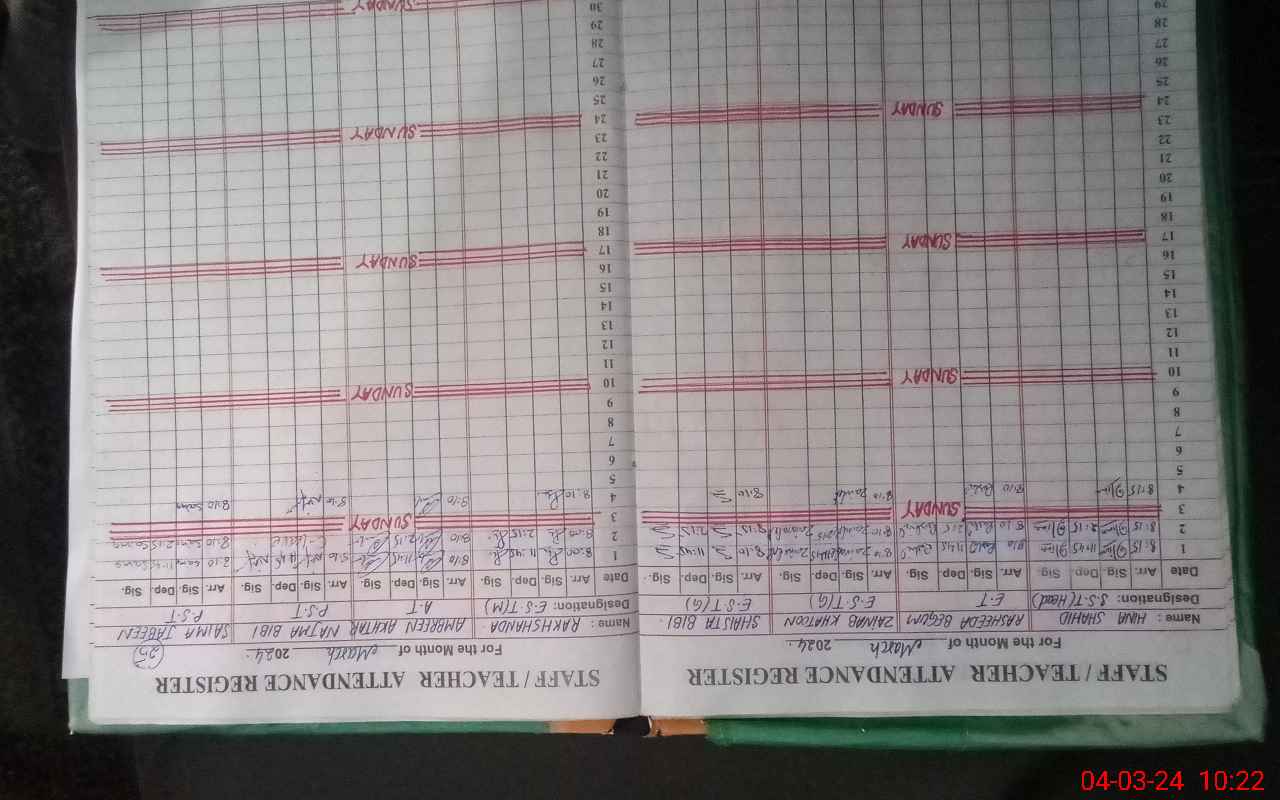 STAFF / TEACHER ATTENDANCE REGISTER
For the Month of March 2024
Name : HINA SHAHID RASHEEDA BEGUM ZAINAB KHATOON SHAISTA BIBI
Designation: S.S.T(Head) E.T E.S.T(G) E.S.T(G)
Date Arr. Sig. Dep. Sig. Arr. Sig. Dep. Sig. Arr. Sig. Dep. Sig. Arr. Sig. Dep. Sig.
1 8:15 11:45 8:10 11:45 8:10 11:45 8:10 11:45
2 8:15 2:15 8:10 2:15 8:10 2:15 8:15 2:15
3 SUNDAY
4 8:15 8:10 8:10 8:10
5
6
7
8
9
10 SUNDAY
11
12
13
14
15
16
17 SUNDAY
18
19
20
21
22
23
24 SUNDAY
25
26
27
28
29
STAFF / TEACHER ATTENDANCE REGISTER
For the Month of March 2024
Name : RAKHSHANDA AMBREEN AKHTAR NAJMA BIBI SAIMA JABEEN
Designation: E.S.T(M) A.T P.S.T P.S.T
Date Arr. Sig. Dep. Sig. Arr. Sig. Dep. Sig. Arr. Sig. Dep. Sig. Arr. Sig. Dep. Sig.
1 8:00 11:45 8:10 11:45 8:10 11:45 8:10 11:45
2 8:00 2:15 8:10 2:15 C-Leave 8:10 2:15
3 SUNDAY
4 8:10 8:10 8:10 8:10
5
6
7
8
9
10 SUNDAY
11
12
13
14
15
16
17 SUNDAY
18
19
20
21
22
23
24 SUNDAY
25
26
27
28
29
30 SUNDAY
04-03-24 10:22